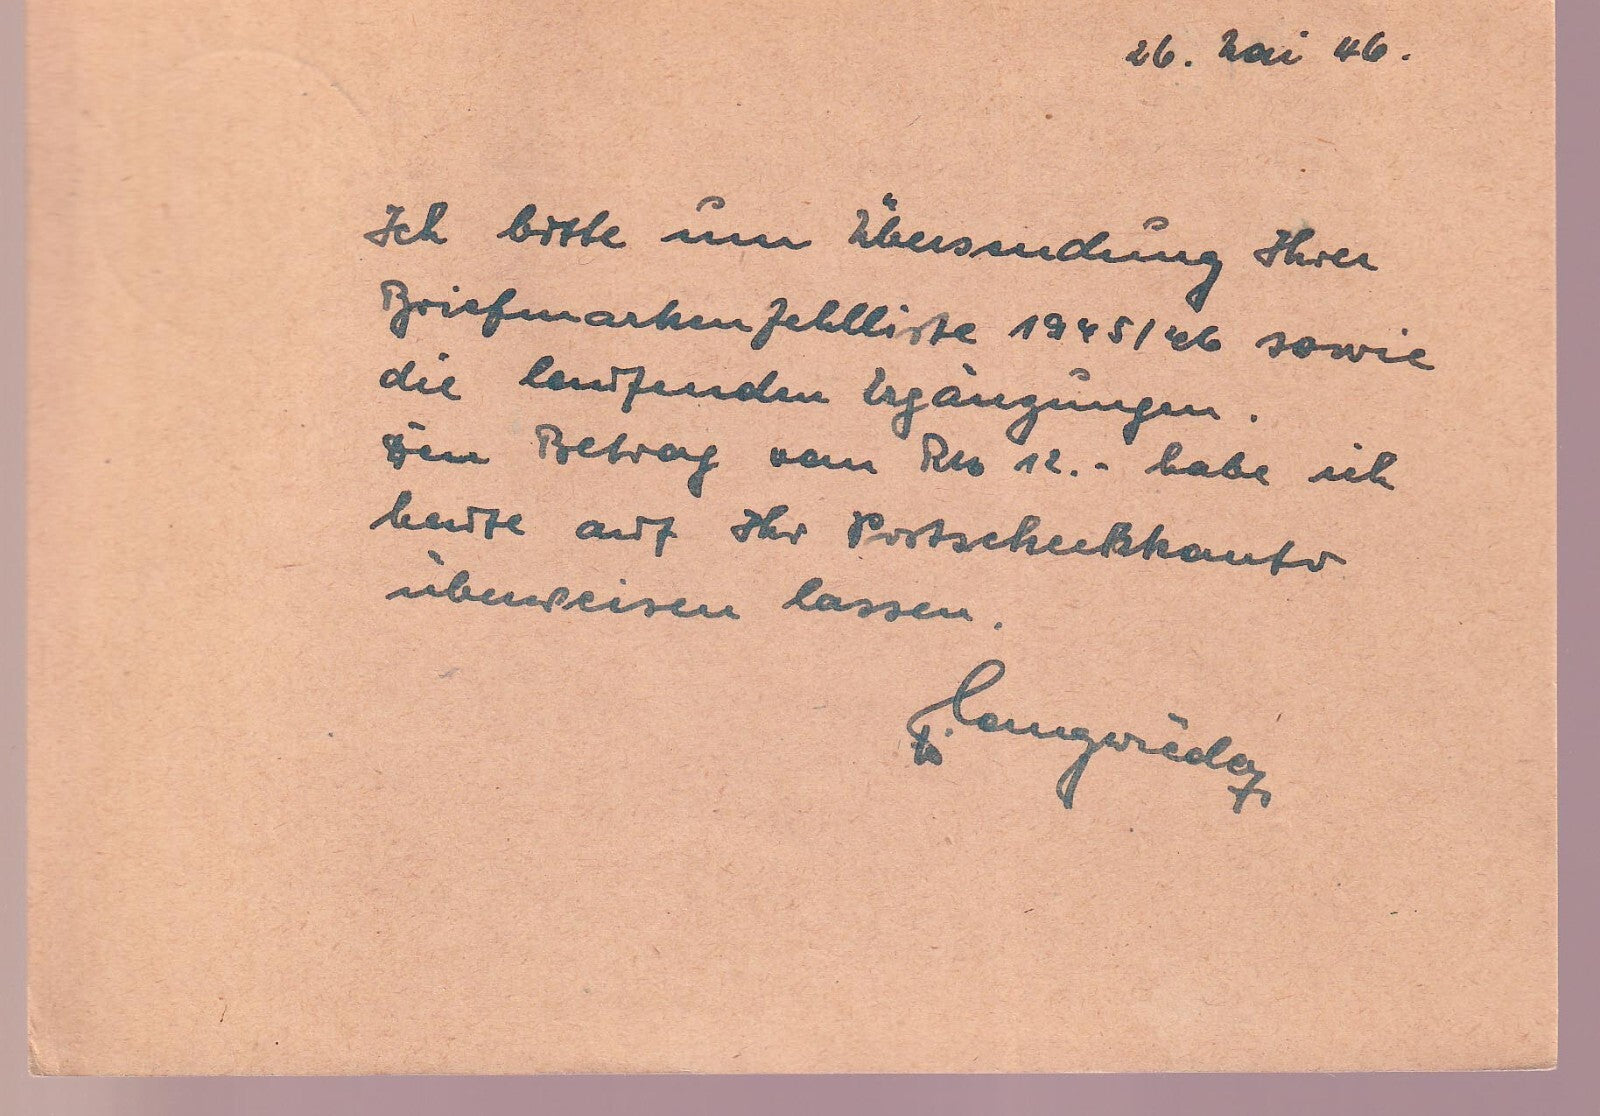 26. Mai 46.
Ich bitte um Übersendung Ihrer
Briefmarkenfehlliste 1945/46 sowie
die laufenden Ergänzungen.
Den Betrag von RM 12.- habe ich
heute auf Ihr Postscheckkonto
überweisen lassen.